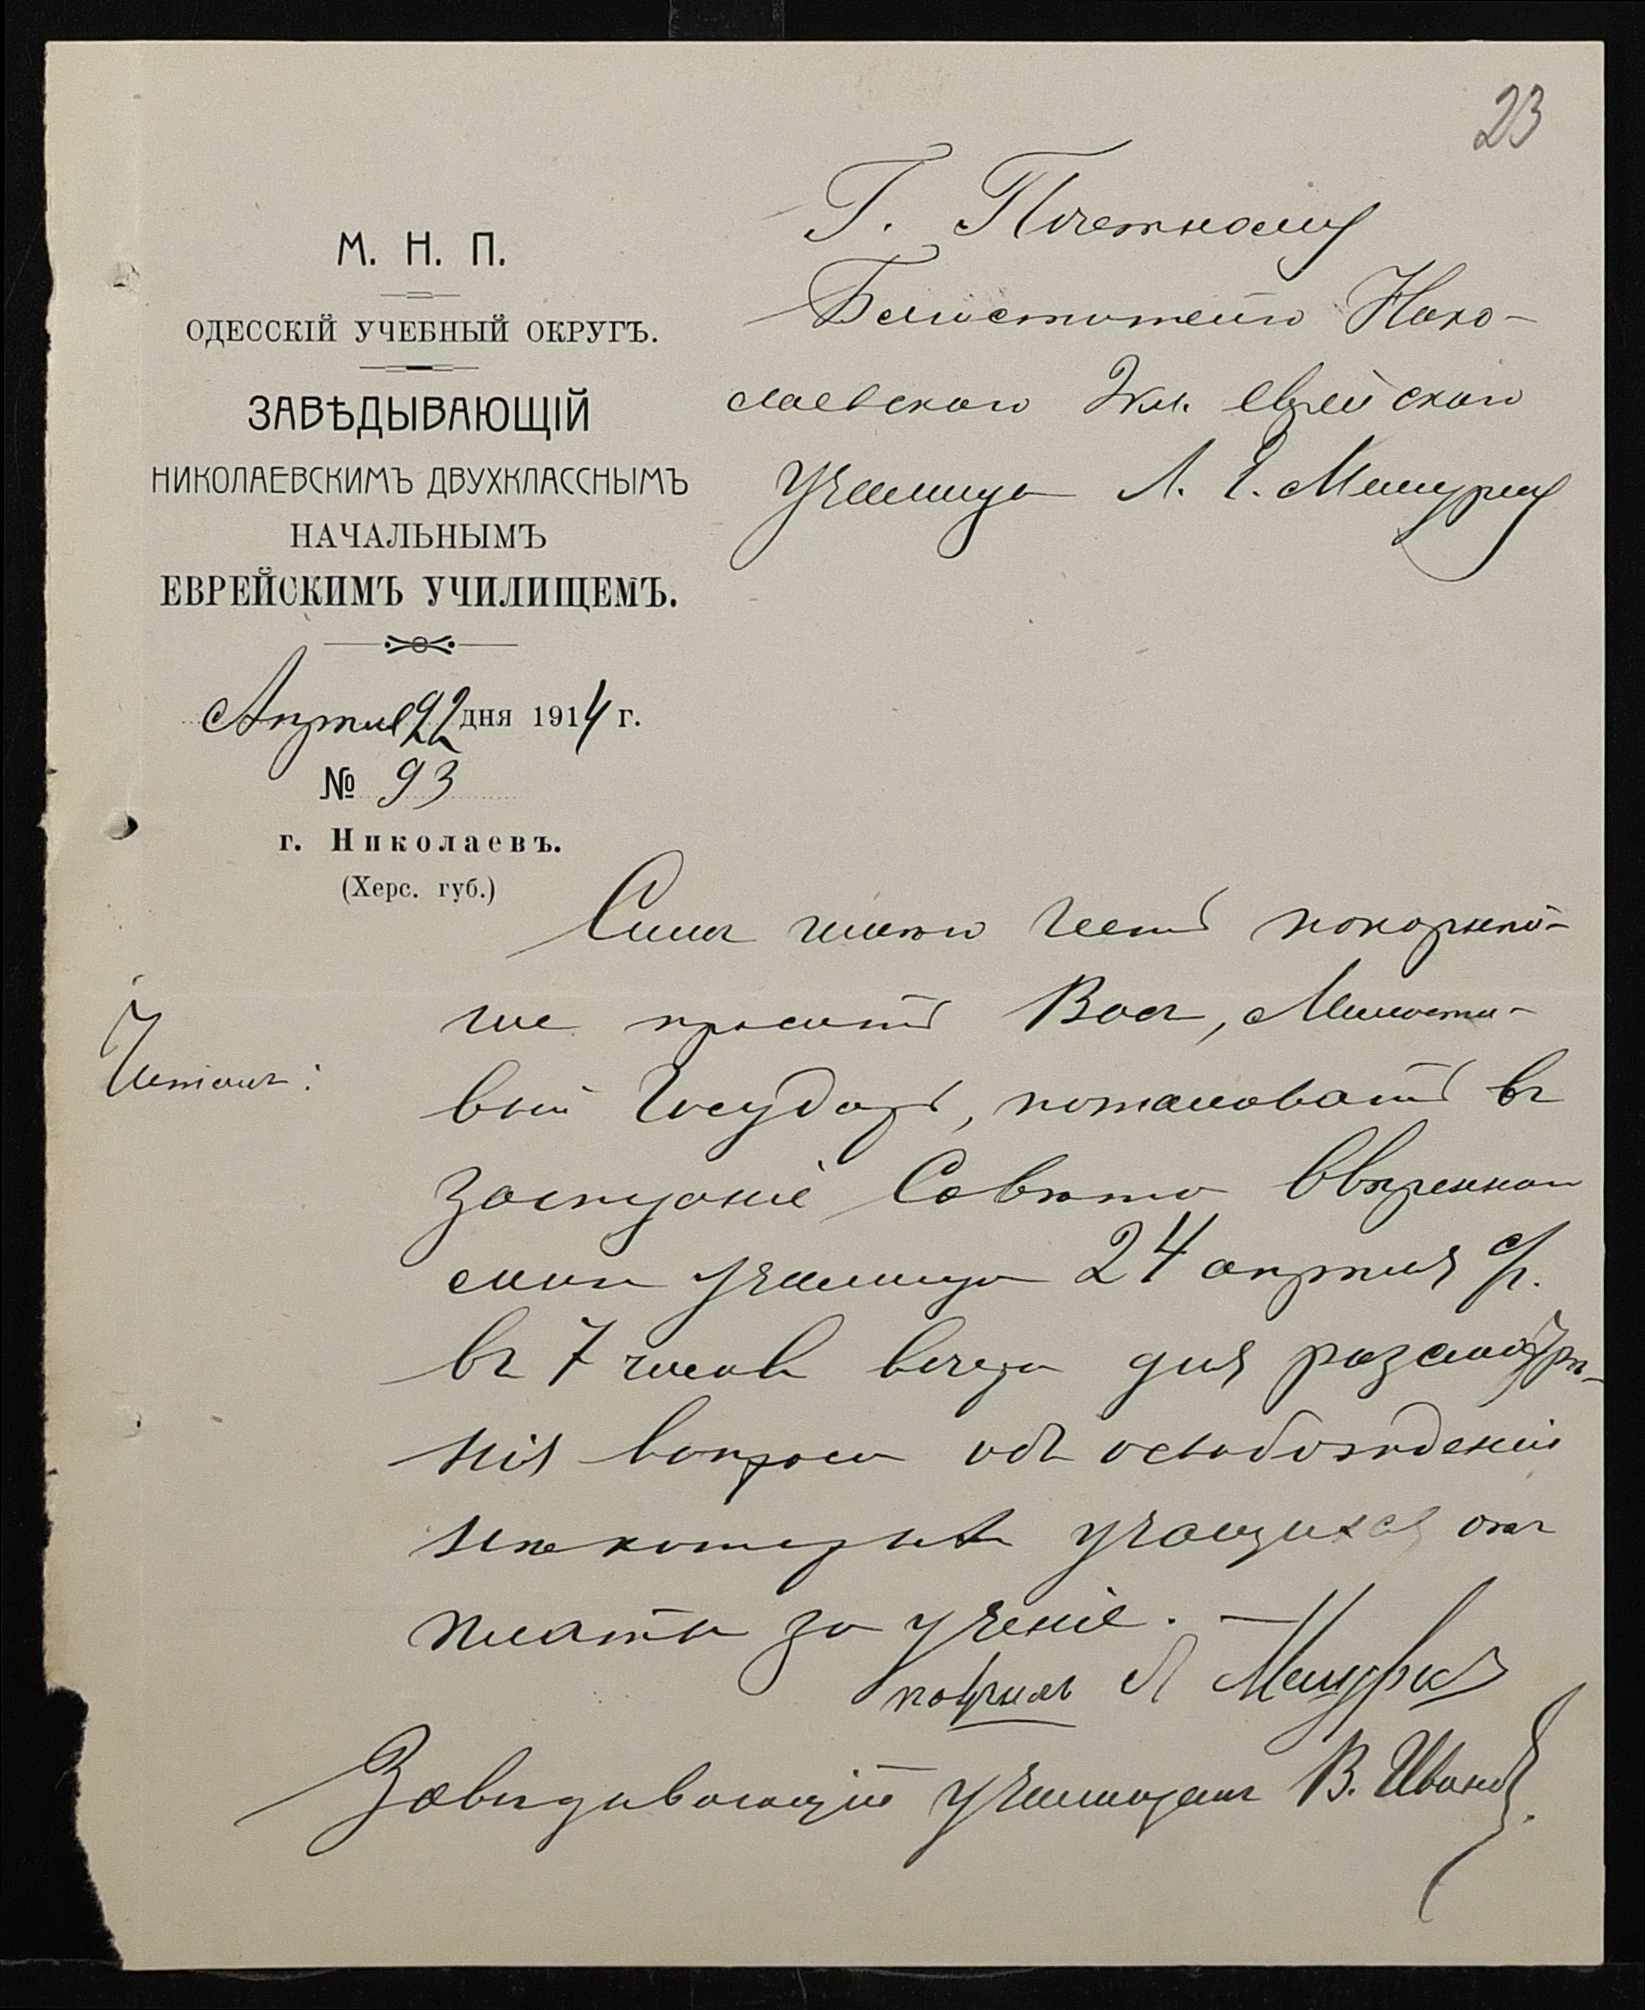 23
М. Н. П.
ОДЕССКІЙ УЧЕБНЫЙ ОКРУГЪ.
ЗАВѢДЫВАЮЩІЙ
НИКОЛАЕВСКИМЪ ДВУХКЛАССНЫМЪ
НАЧАЛЬНЫМЪ
ЕВРЕЙСКИМЪ УЧИЛИЩЕМЪ.
Апрѣля 22 дня 1914 г.
№ 93
г. Николаевъ.
(Херс. губ.)
Г. Почетному
Блюстителю Нико-
лаевскаго 2 кл. еврейскаго
училища Л. Мишурису
Симъ имѣю честь покорнѣй-
ше просить Васъ, Милости-
вый Государь, пожаловать въ
засѣданіе Совѣта ввѣреннаго
мнѣ училища 24 апрѣля с/г.
въ 7 часовъ вечера для разсмотрѣ-
нія вопроса объ освобожденіи
нѣкоторыхъ учащихся отъ
платы за ученіе. —
Читали:
получилъ Л Мишурис
Завѣдывающій училищемъ В. Ивановъ.